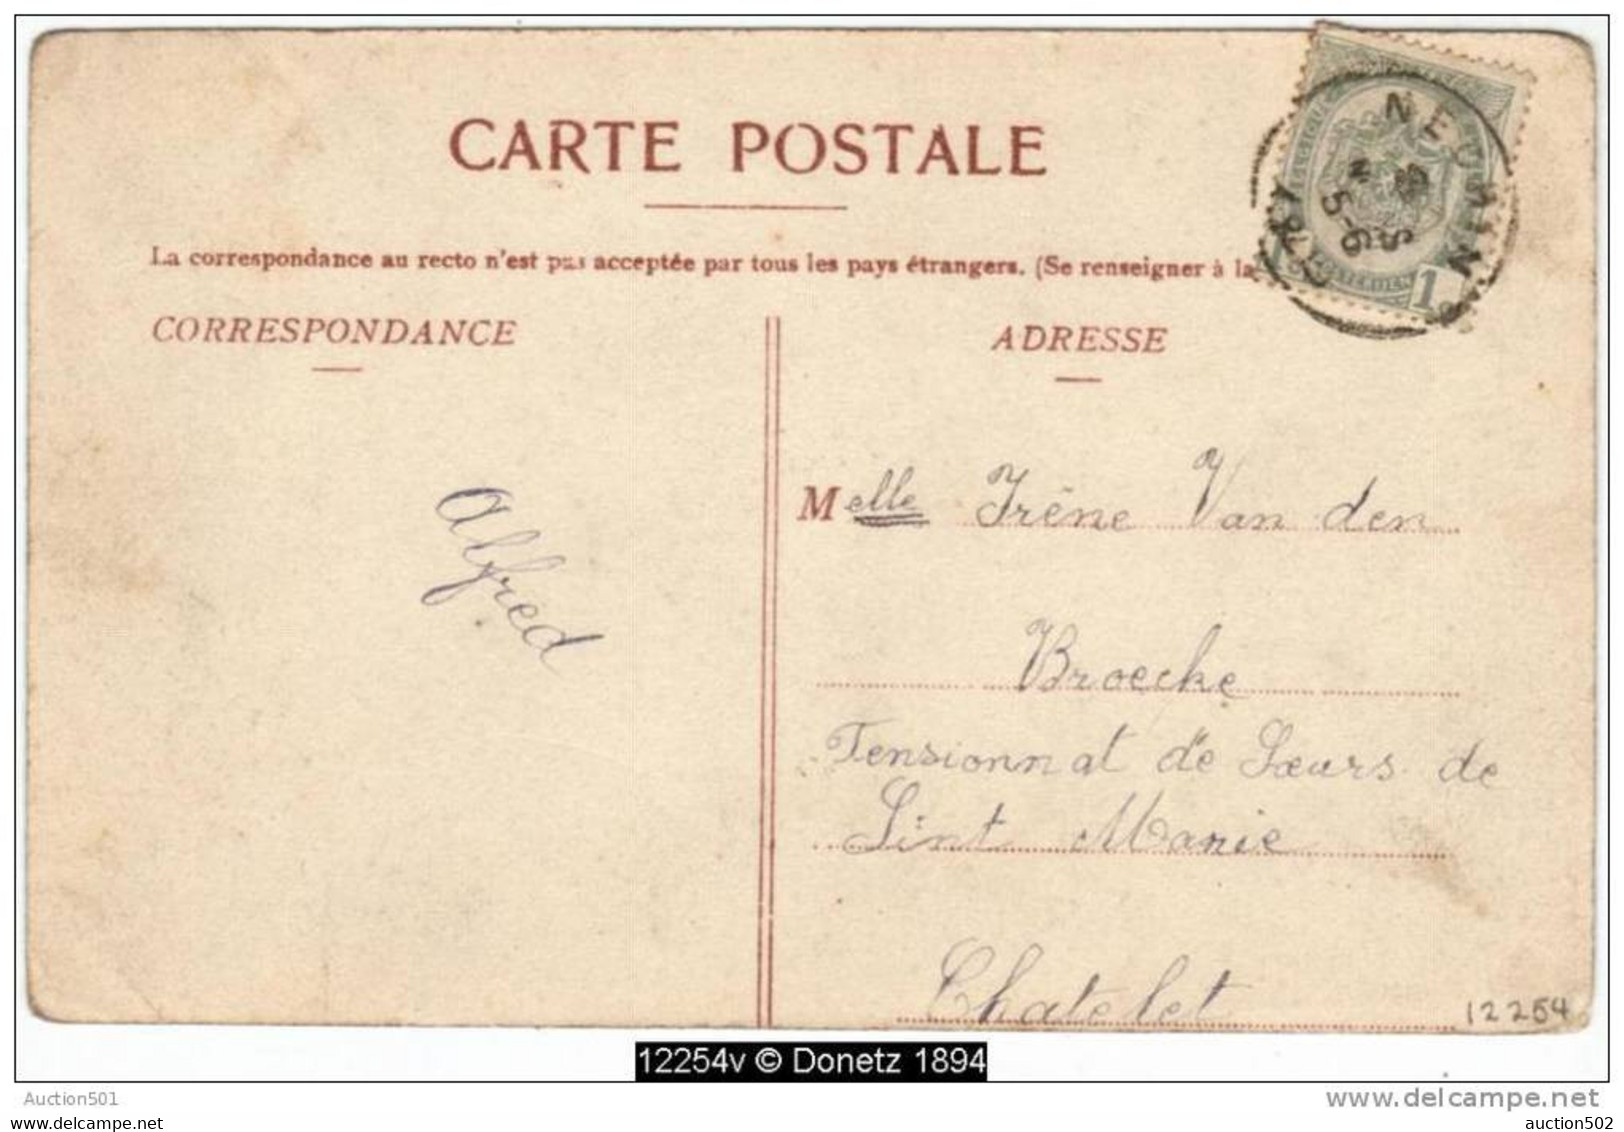 CARTE POSTALE
La correspondance au recto n'est pas acceptée par tous les pays étrangers. (Se renseigner à la
CORRESPONDANCE
ADRESSE
NEUVIN
5-6
1
Melle Irène Van den
Broecke
Pensionnat de Sœurs de
Sint Marie
Chatelet
Alfred
12254
12254v © Donetz 1894
Auction501
www.delcampe.net
auction502